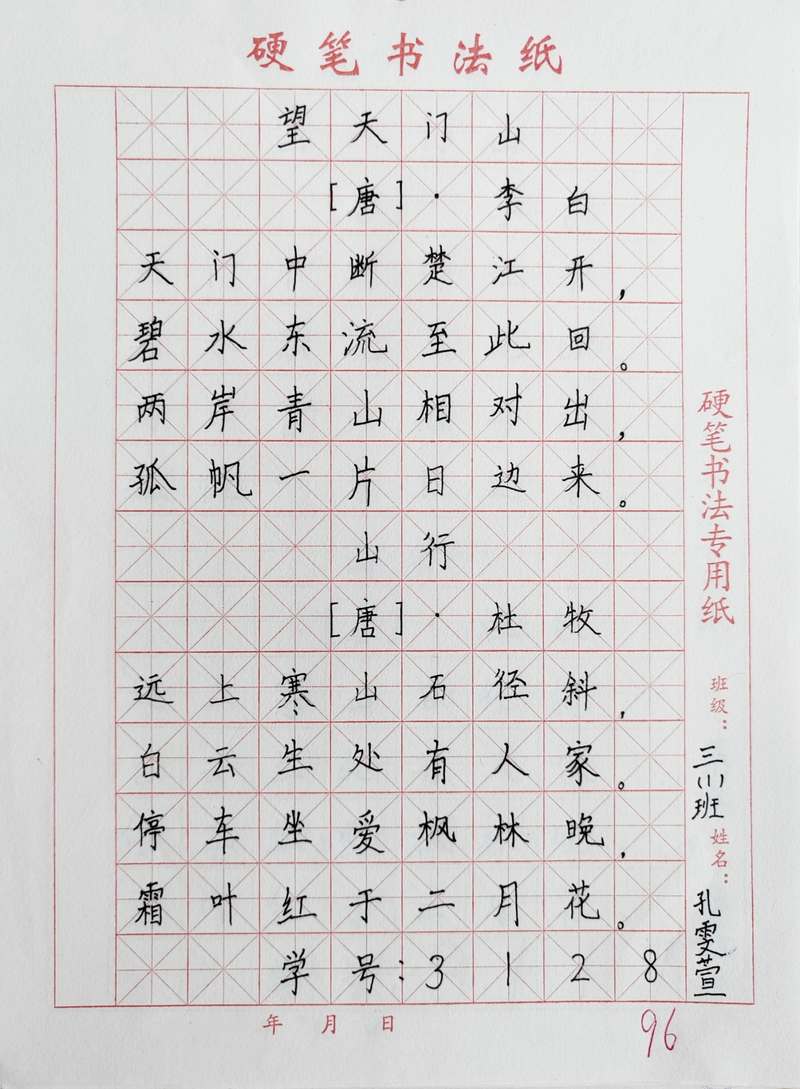 硬笔书法纸
望天门山
[唐]·李白
天门中断楚江开，
碧水东流至此回。
两岸青山相对出，
孤帆一片日边来。
山行
[唐]·杜牧
远上寒山石径斜，
白云生处有人家。
停车坐爱枫林晚，
霜叶红于二月花。
学号：3128
年 月 日
96
硬笔书法专用纸
班级：三(1)班
姓名：孔雯萱